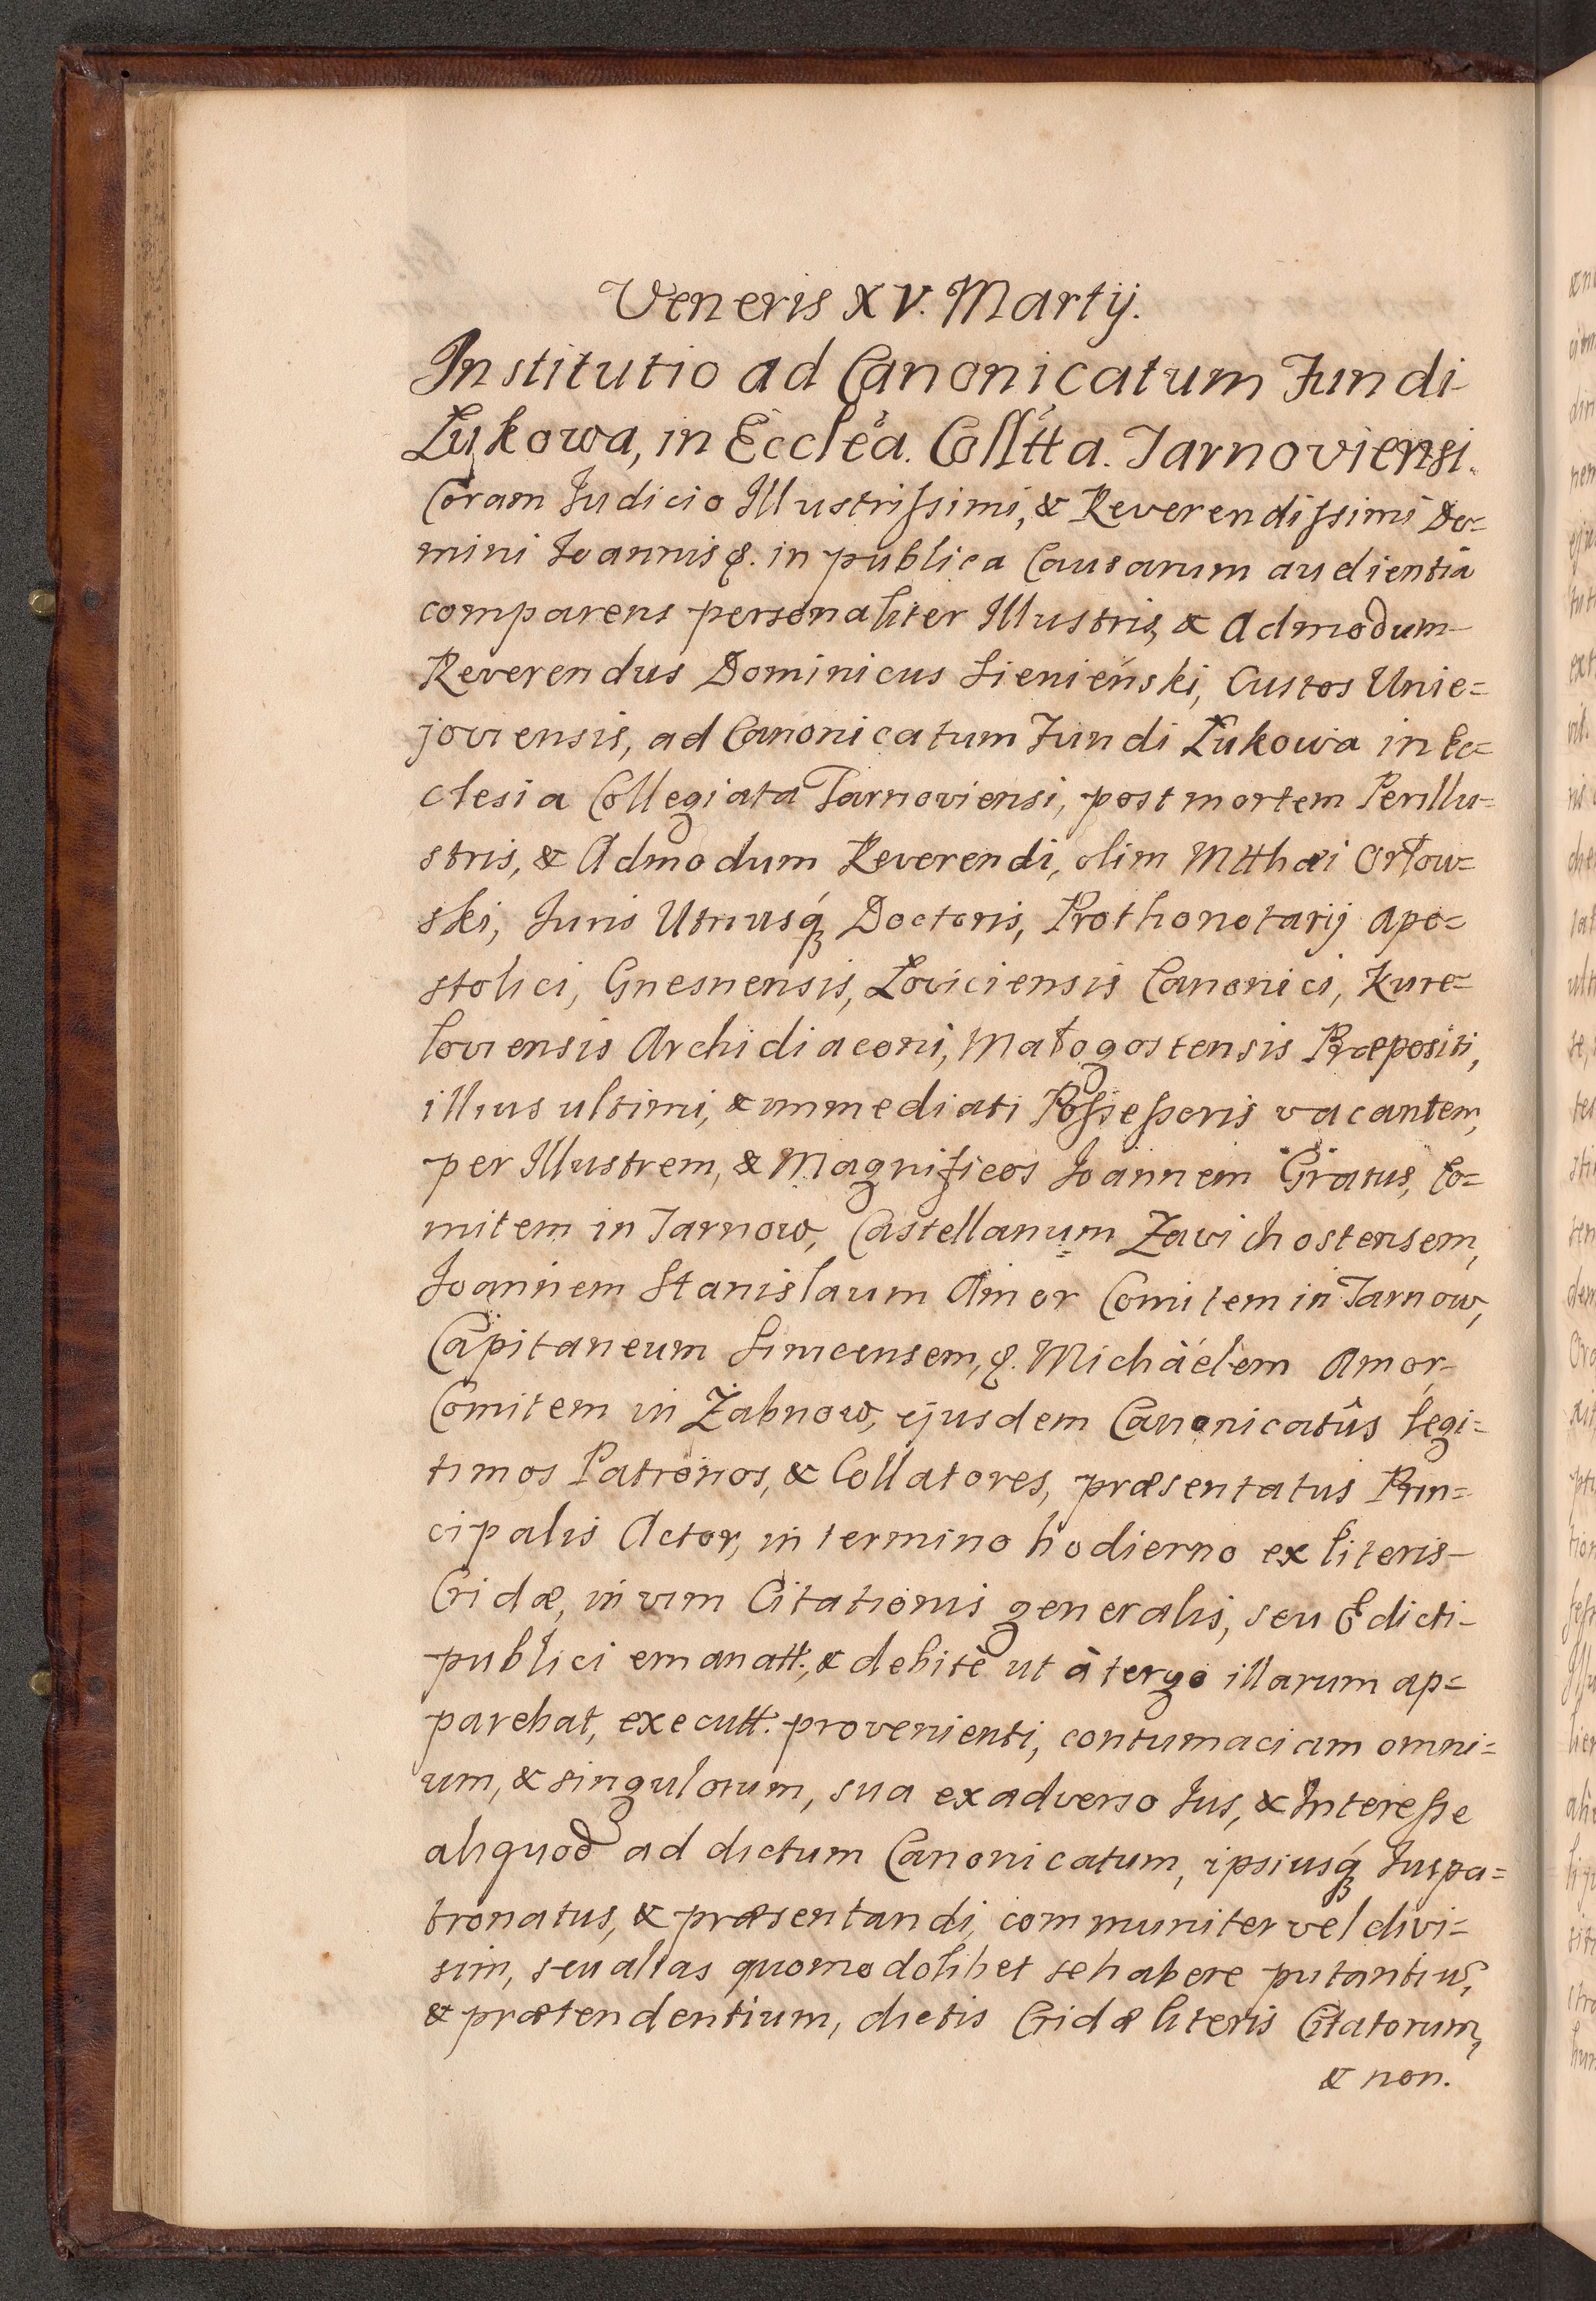 Veneris XV. Martij.
Institutio ad Canonicatum Fundi
Łukowa, in Eccle̾a. Collt̾ta. Tarnoviensi.
Coram Judicio Illustrissimi, & Reverendissimi Do=
mini Joannis &. in publica Causarum audientia
comparens personaliter Illustris, & Admodum
Reverendus Dominicus Sienieński, Custos Unie=
joviensis, ad Canonicatum Fundi Łukowa in Ec=
clesia Collegiata Tarnoviensi, post mortem Perillu=
stris, & Admodum Reverendi, olim Mtthæi Orłow=
ski, Juris Utriusq́ꝫ Doctoris, Prothonotarij Apo=
stolici, Gnesnensis, Łoviciensis Canonici, Kure=
loviensis Archidiaconi, Małogostensis Præpositi,
illius ultimi, & immediati Possessoris vacantem,
per Illustrem, & Magnificos Joannem Gratus, Co=
mitem in Tarnow, Castellanum Zavichostensem,
Joannem Stanislaum Amor Comitem in Tarnow,
Capitaneum Sinicensem, &. Michaëlem Amor
Comitem in Żabnow, ejusdem Canonicatûs legi=
timos Patronos, & Collatores, præsentatus Prin=
cipalis Actor, in termino hodierno ex literis
Cridæ, in vim Citationis generalis, seu Edicti
publici emanatt:, & debitè ut à tergo illarum ap=
parebat, executt. provenienti, contumaciam omni=
um, & singulorum, sua exadverso Jus, & Interesse
aliquod ad dictum Canonicatum, ipsiusq́ꝫ Juspa=
tronatus, & præsentandi, communiter vel divi=
sim, seu alias quomodolibet se habere putantiu̅,
& prætendentium, dictis Cridæ literis Citatorum,
& non.